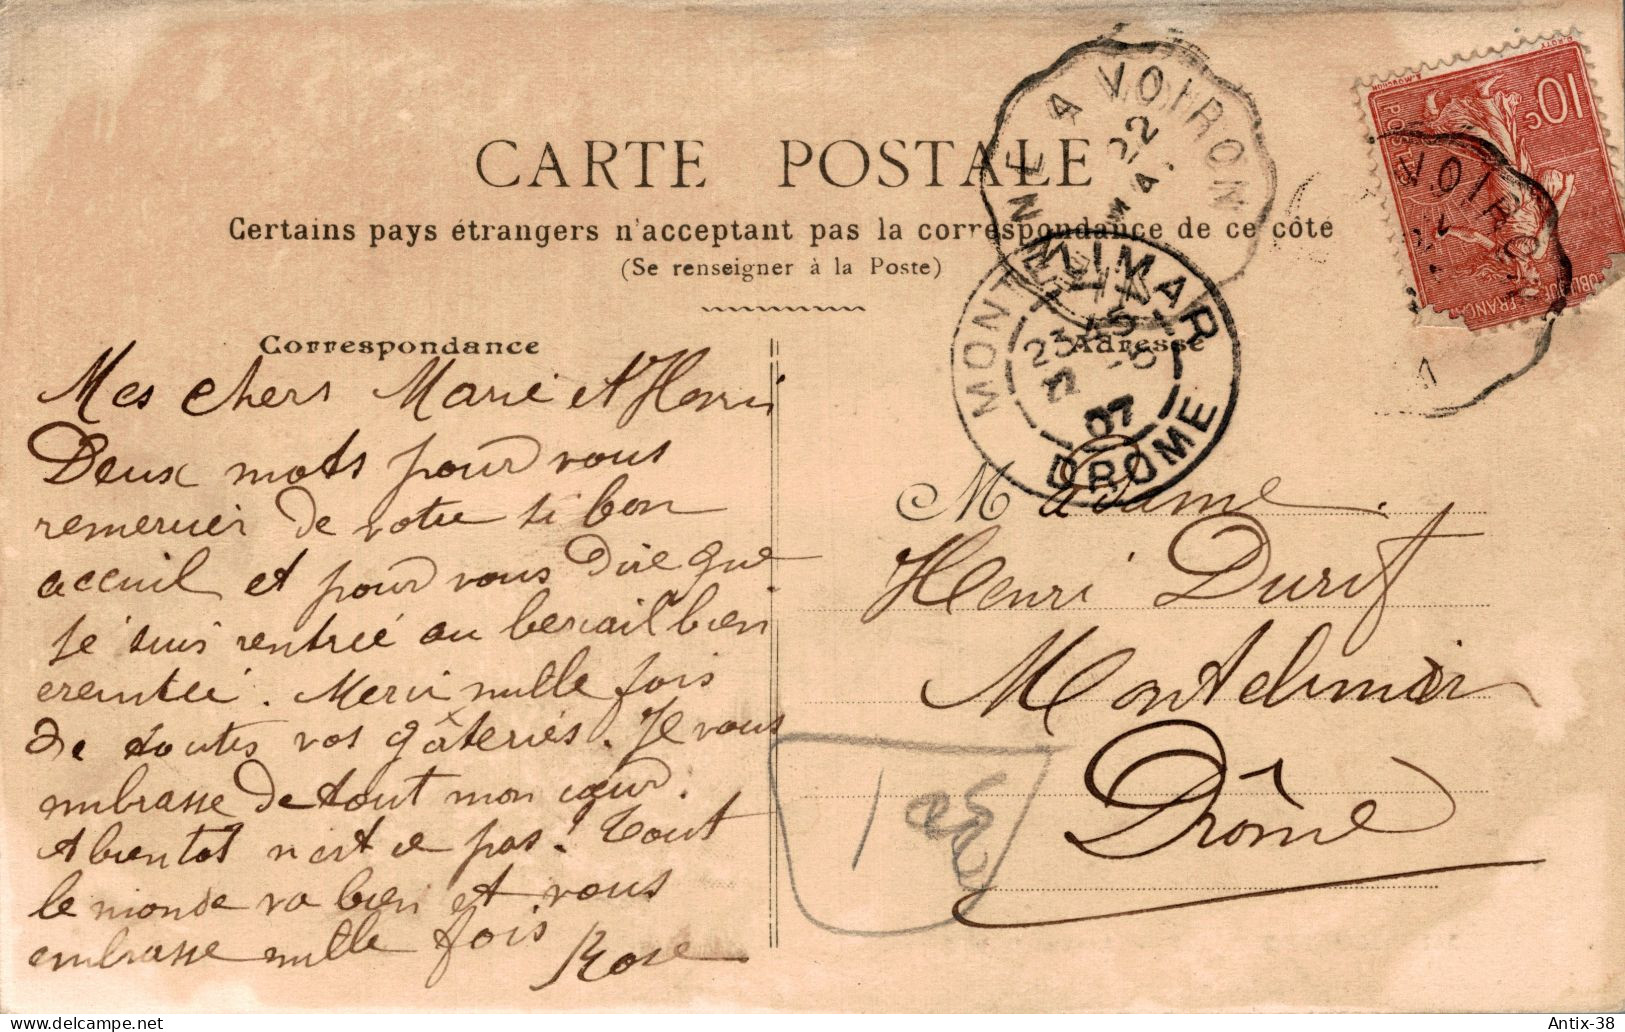 CARTE POSTALE
Certains pays étrangers n'acceptent pas la correspondance de ce côté
(Se renseigner à la Poste)
Correspondance
Mes chers Marie et Henri
Deux mots pour vous
remercier de votre si bon
acceuil et pour vous dire que
je suis rentrée au bercail bien
ereintée. Merci mille fois
de toutes vos gâteries. Je vous
embrasse de tout mon cœur.
A bientot n'est ce pas! Tout
le monde va bien et vous
embrasse mille fois
Rose
Adresse
Madame
Henri Durif
Montelimar
Drôme
A VOIRON
22
MONTELIMAR
23
07
DROME
10c
VOIRO
Antix-38